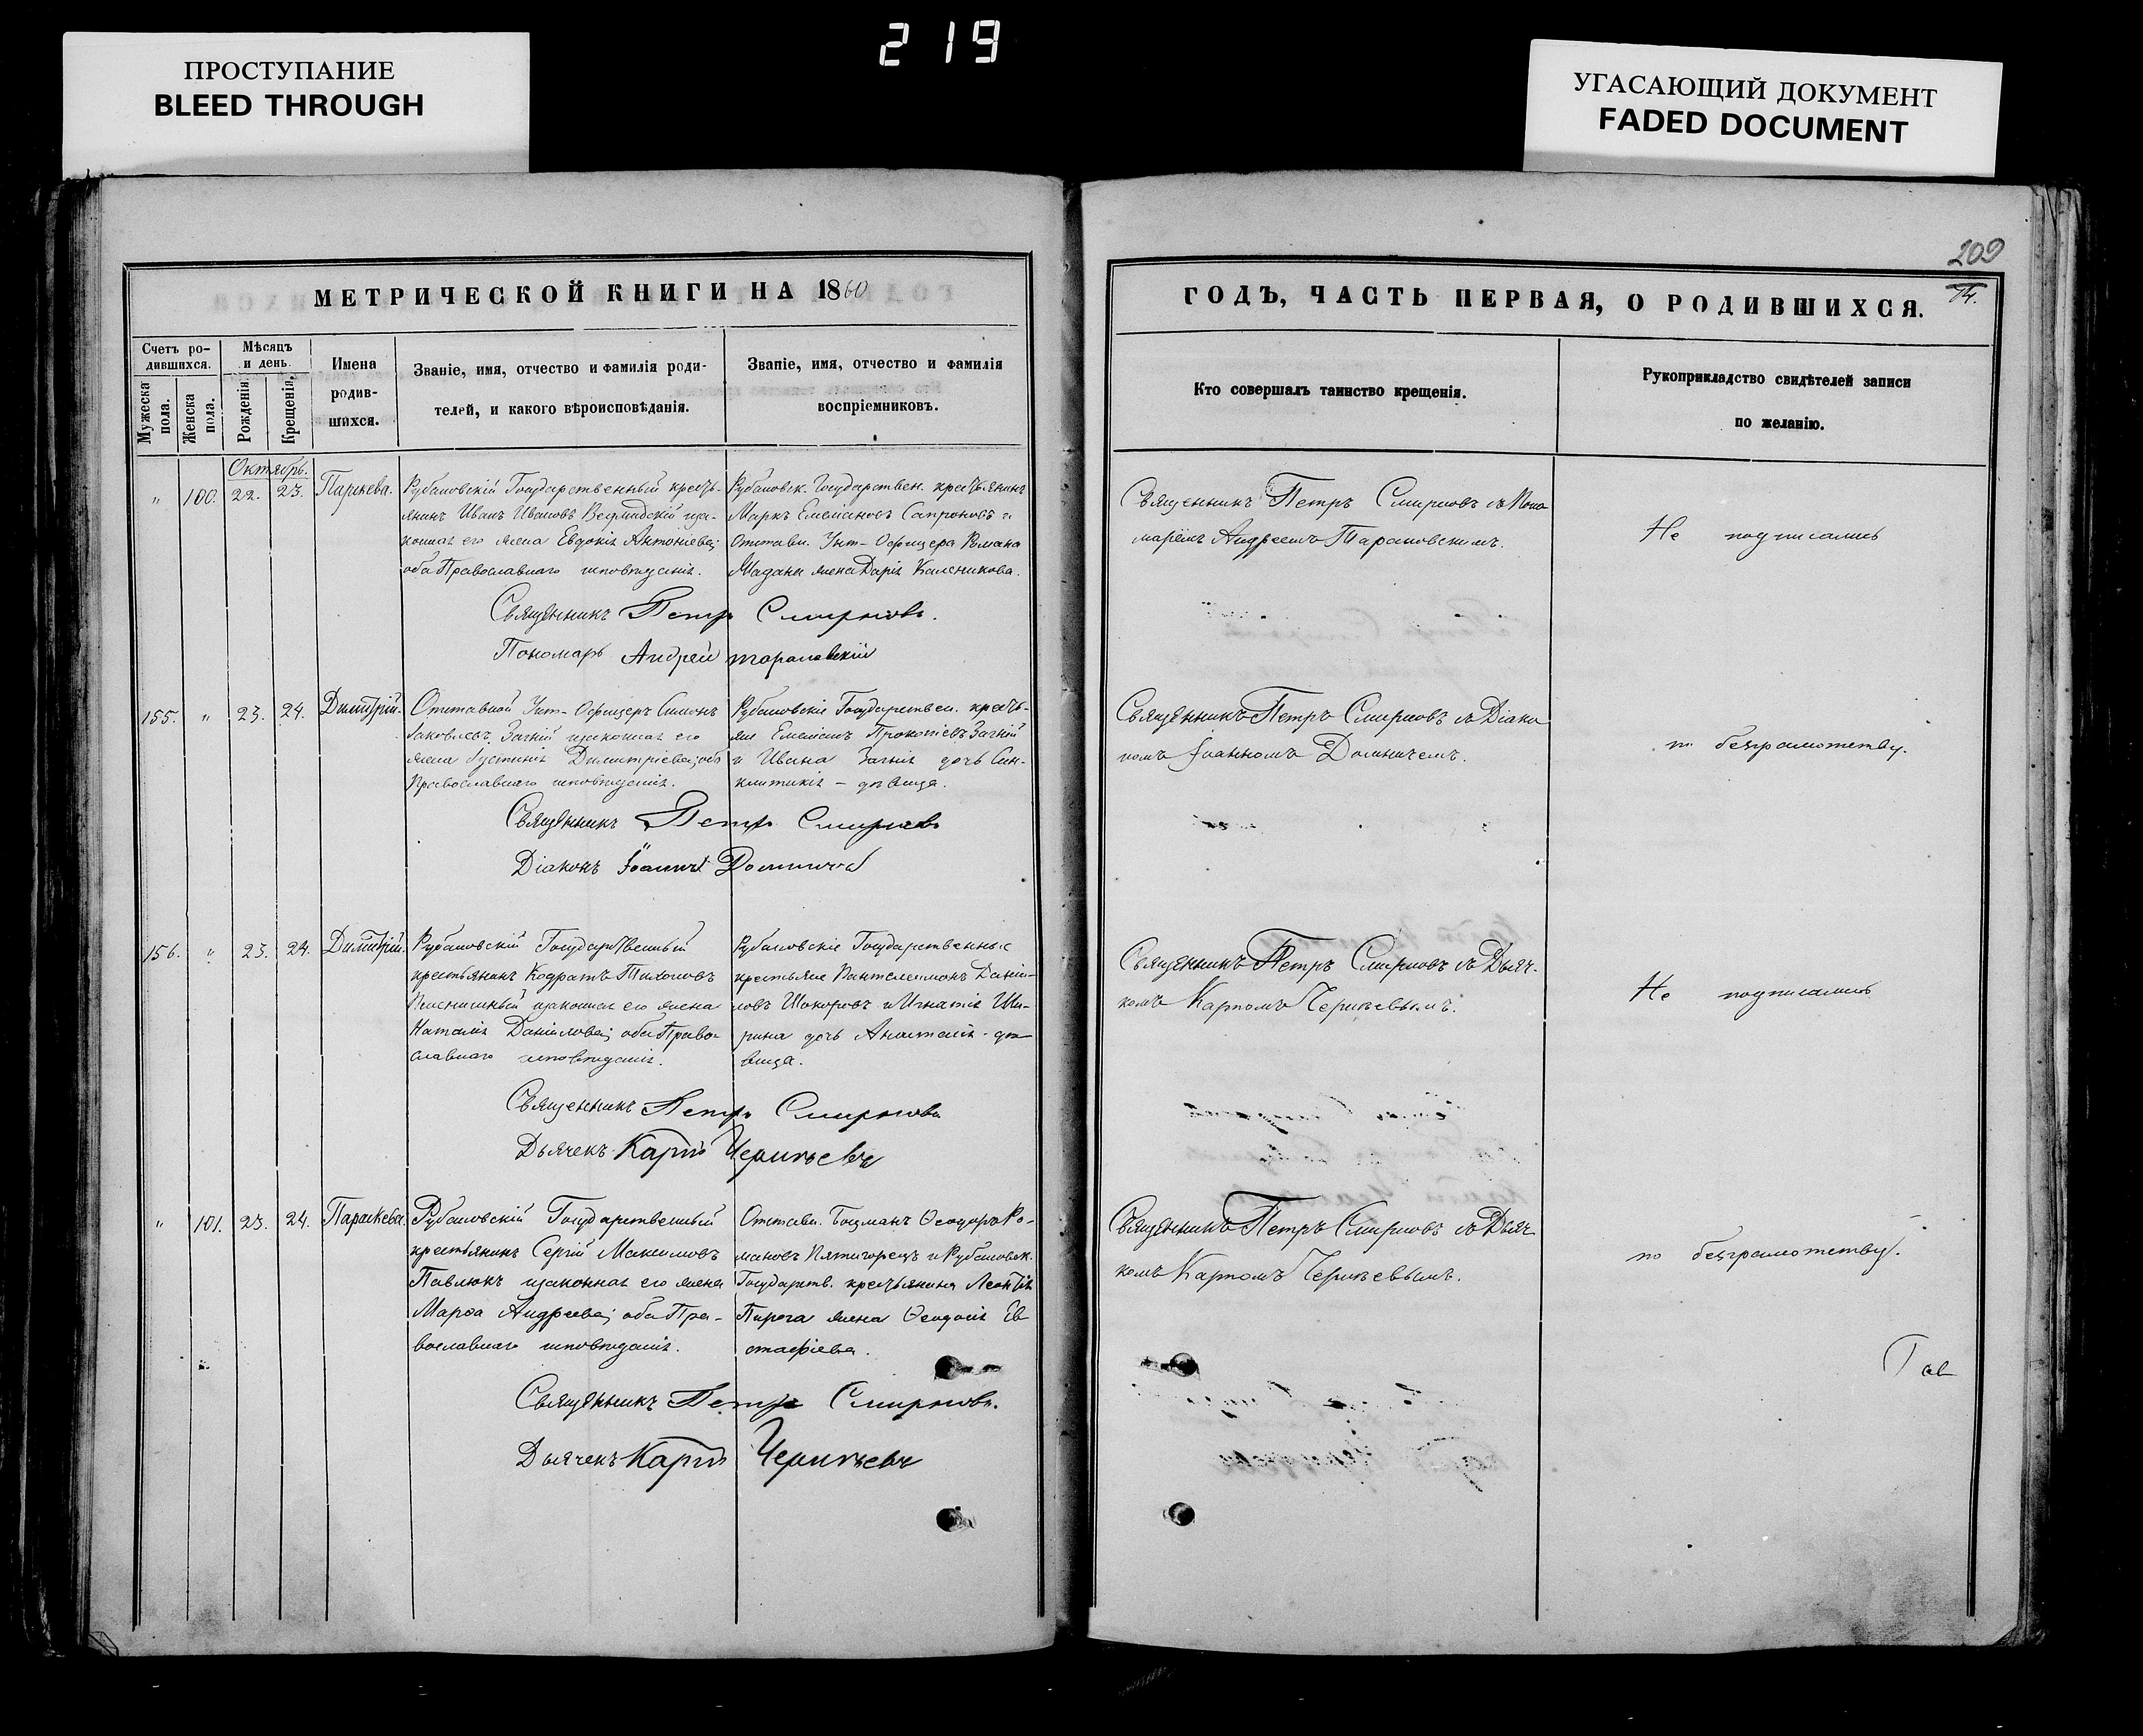 219
ПРОСТУПАНИЕ
BLEED THROUGH
УГАСАЮЩИЙ ДОКУМЕНТ
FADED DOCUMENT
МЕТРИЧЕСКОЙ КНИГИ НА 1860
Счетъ ро-
дившихся.
Мужеска пола.
Женска пола.
Мѣсяцъ
и день.
Рожденія.
Крещенія.
Имена
родив-
шихся.
Званіе, имя, отчество и фамилія роди-
телей, и какого вѣроисповѣданія.
Званіе, имя, отчество и фамилія
воспріемниковъ.
Октябрь.
" 100. 22. 23. Параскева.
Рубановскій Государственный кресть-
янинъ Иванъ Ивановъ за-
конная его жена Евдокія Антоніева;
оба Православнаго исповѣданія.
Рубановск. Государствен. крестьянинъ
Маркъ Емеліановъ Сапроновъ и
Отставн. Унт-Офицера Романа
жена Дарія
Священникъ Петръ Смирновъ.
Пономарь Андрей Тарановскій
155. " 23. 24. Димитрій.
Отставной Унт-Офицеръ Симонъ
Іаковлевъ законная его
жена Іустинія Димитріева; оба
Православнаго исповѣданія.
Рубановскіе Государствен. кресть-
яне Емеліанъ Прокопіевъ
и Ивана дочь Син-
клитикія - дѣвица.
Священникъ Петръ Смирновъ
Діаконъ Іоаннъ
156. " 23. 24. Димитрій.
Рубановскій Государственный
крестьянинъ Кодратъ Тихоновъ
законная его жена
Наталія Даніилова; оба Право-
славнаго исповѣданія.
Рубановскіе Государственные
крестьяне Пантелеимонъ Даніи-
ловъ и Игнатія Ши-
рина дочь Анастасія - дѣ-
вица.
Священникъ Петръ Смирновъ
Дьячекъ Карпъ
" 101. 23. 24. Параскева.
Рубановскій Государственный
крестьянинъ Сергій Максимовъ
Павлюкъ законная его жена
Марѳа Андреева; оба Пра-
вославнаго исповѣданія.
Отставн. Боцманъ Ѳеодоръ Ро-
мановъ Пятигорецъ и Рубановск.
Государств. крестьянина Леонтія
Пирога жена Ѳеодосія Ев-
стафіева.
Священникъ Петръ Смирновъ.
Дьячекъ Карпъ
209
ГОДЪ, ЧАСТЬ ПЕРВАЯ, О РОДИВШИХСЯ.
Кто совершалъ таинство крещенія.
Рукоприкладство свидѣтелей записи
по желанію.
Священникъ Петръ Смирновъ съ Поно-
маремъ Андреемъ Тарановскимъ.
Не подписались
Священникъ Петръ Смирновъ съ Діако-
номъ Іоанномъ
по безграмотству.
Священникъ Петръ Смирновъ съ Дьяч-
комъ Карпомъ
Не подписались
Священникъ Петръ Смирновъ съ Дьяч-
комъ Карпомъ
по безграмотству.